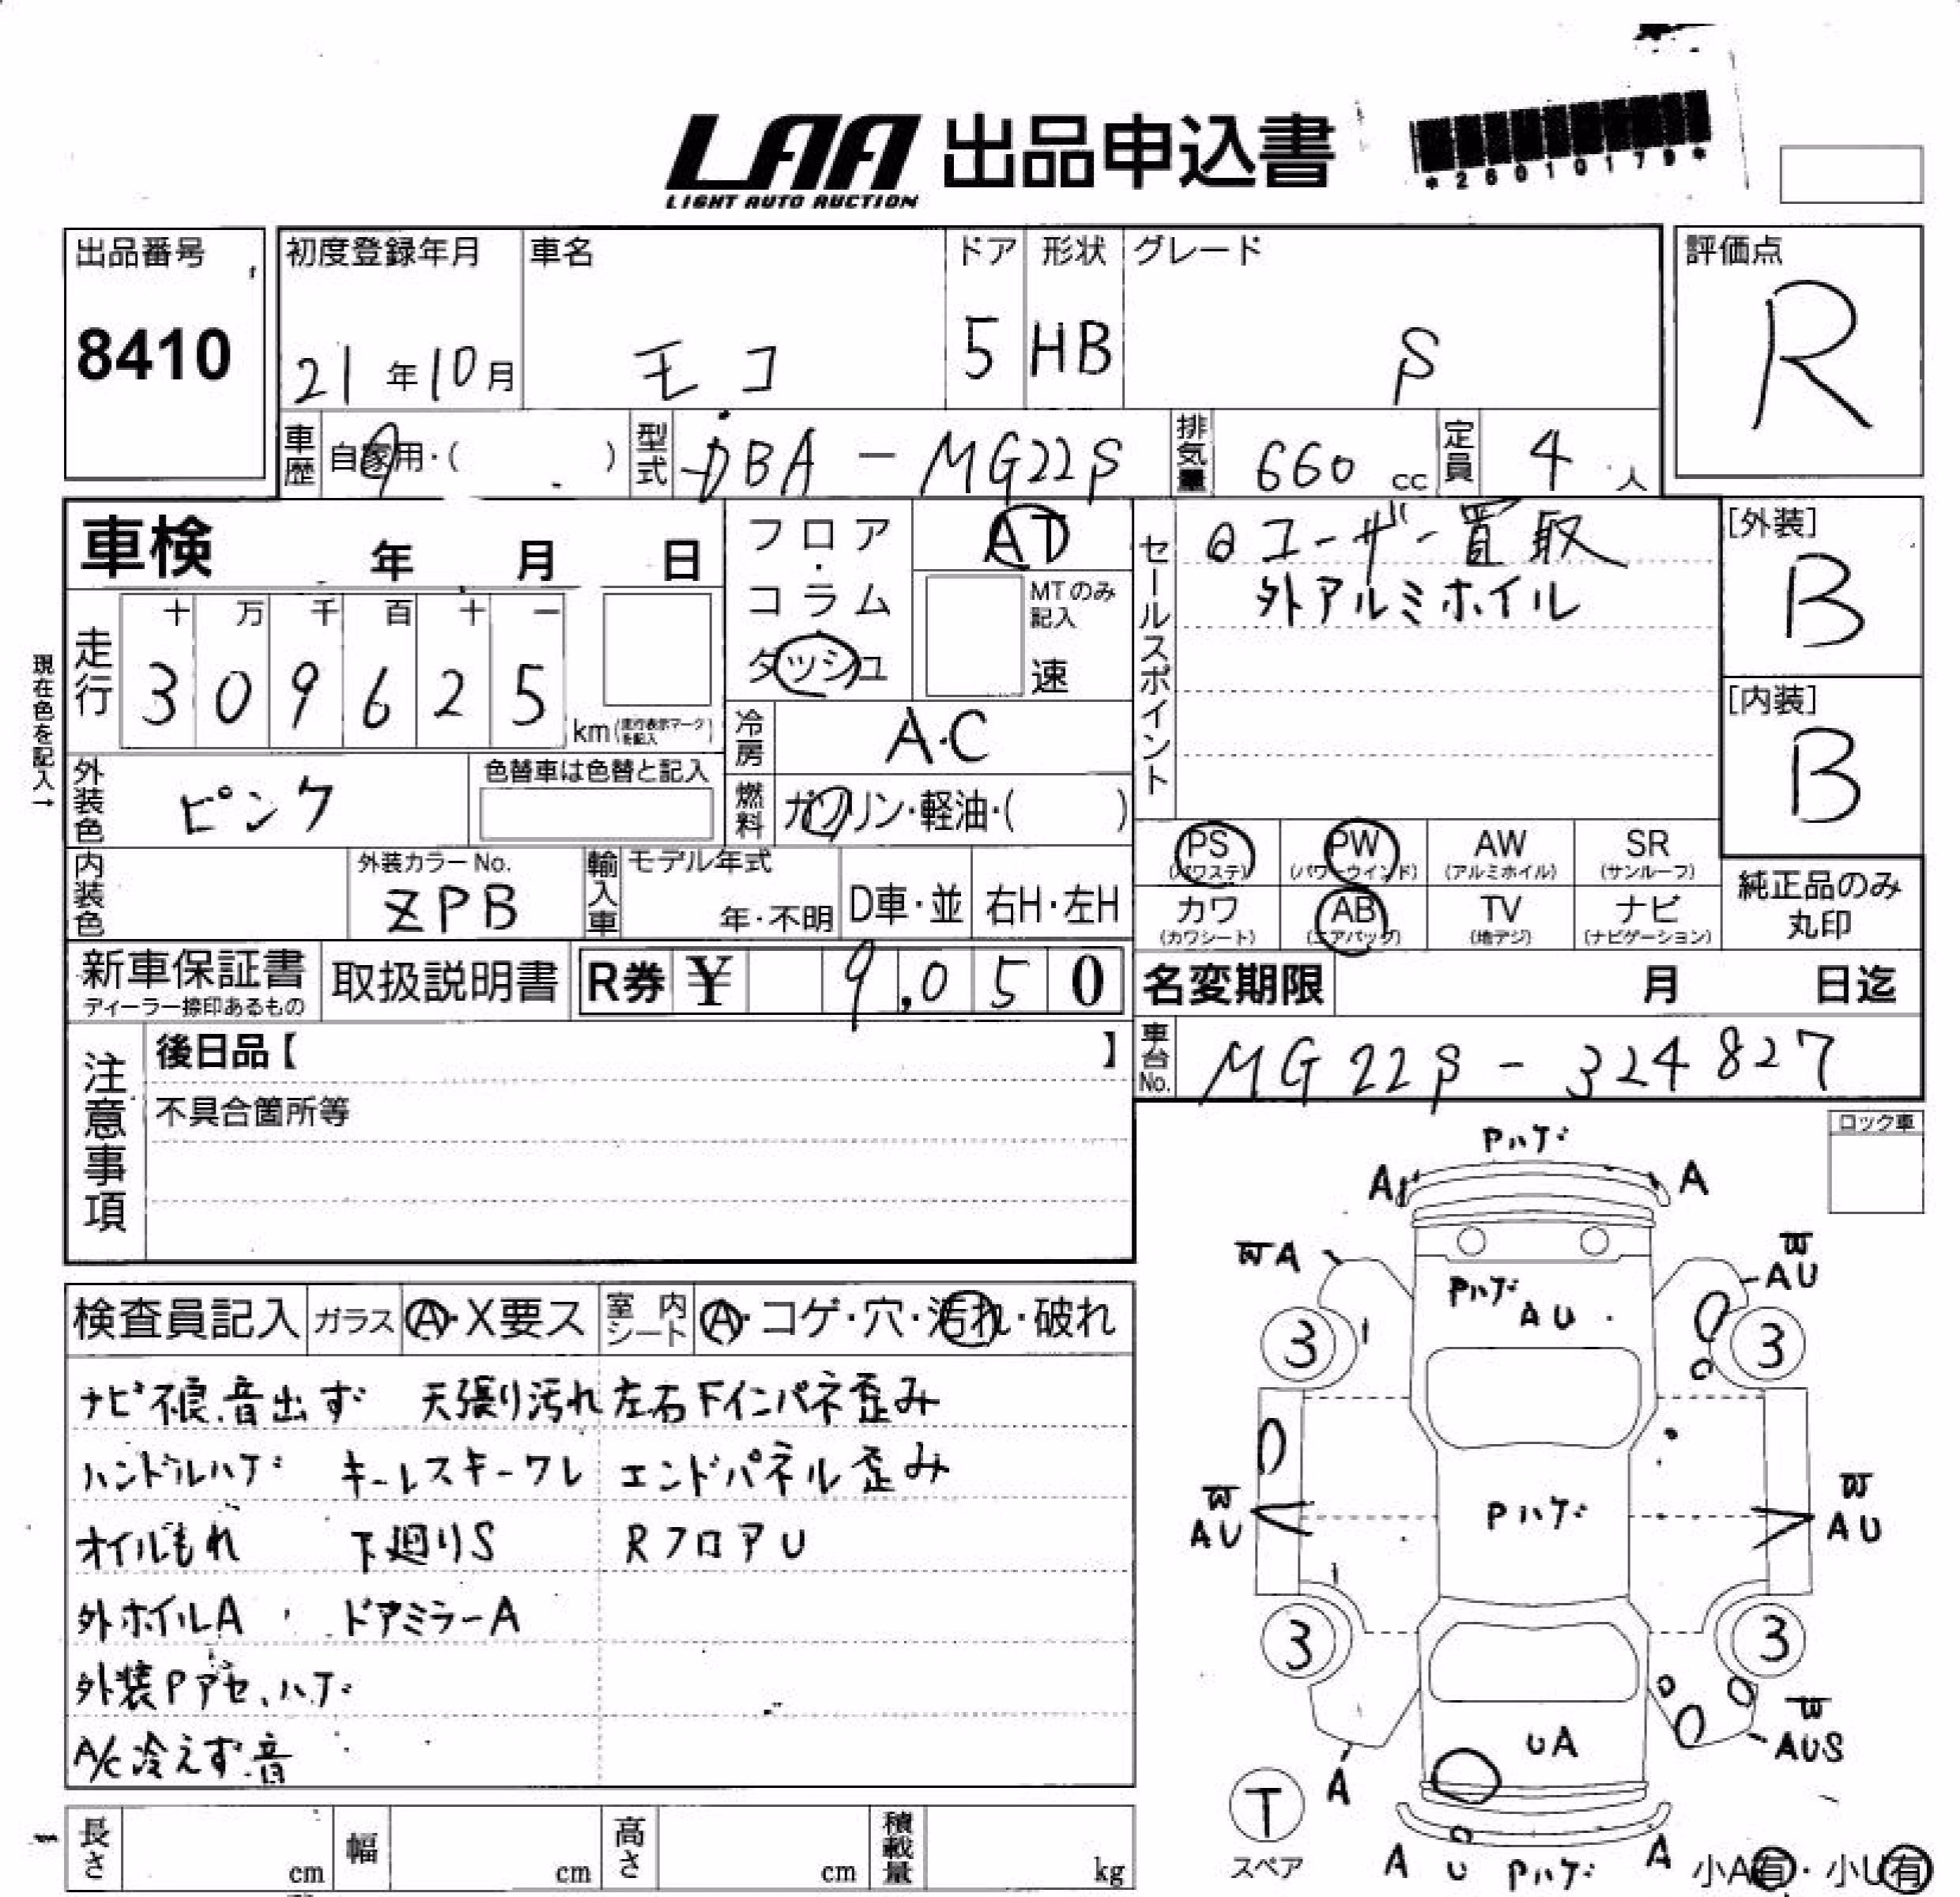 LAA 出品申込書
LIGHT AUTO AUCTION
*26010179*
出品番号
8410
初度登録年月
21年10月
車名
モコ
ドア
5
形状
HB
グレード
S
評価点
R
車歴 自家用・( )
型式 DBA-MG22S
排気量 660 cc
定員 4 人
車検 年 月 日
現在色を記入→
走行 十 万 千 百 十 一
3 0 9 6 2 5
km(走行表示マークを記入)
フロア・コラム
ダッシュ
AT
MTのみ記入
速
冷房 A.C
燃料 ガソリン・軽油・( )
外装色 ピンク
色替車は色替と記入
内装色
外装カラーNo.
ZPB
輸入車
モデル年式
年・不明
D車・並
右H・左H
セールスポイント
ユーザー買取
外アルミホイル
[外装]
B
[内装]
B
PS (パワステ)
PW (パワーウインド)
AW (アルミホイル)
SR (サンルーフ)
カワ (カワシート)
AB (エアバッグ)
TV (地デジ)
ナビ (ナビゲーション)
純正品のみ丸印
新車保証書
ディーラー捺印あるもの
取扱説明書
R券 ¥ 9,050
名変期限 月 日迄
車台No. MG22S-324827
注意事項
後日品【 】
不具合箇所等
ロック車
検査員記入
ガラス A・X要ス
室内シート A・コゲ・穴・汚れ・破れ
ナビ不良.音出ず 天張り汚れ 左右Fインパネ歪み
ハンドルハゲ キーレスキーワレ エンドパネル歪み
オイルもれ 下廻りS RフロアU
外ホイルA ドアミラーA
外装Pアセ、ハゲ
A/C冷えず.音
Pハゲ
A A
WA
W
AU
Pハゲ
AU
3 3
W
AU
Pハゲ
W
AU
3 3
UA
W
AUS
A
T
スペア
A U Pハゲ A
小A有・小U有
長さ cm
幅 cm
高さ cm
積載量 kg